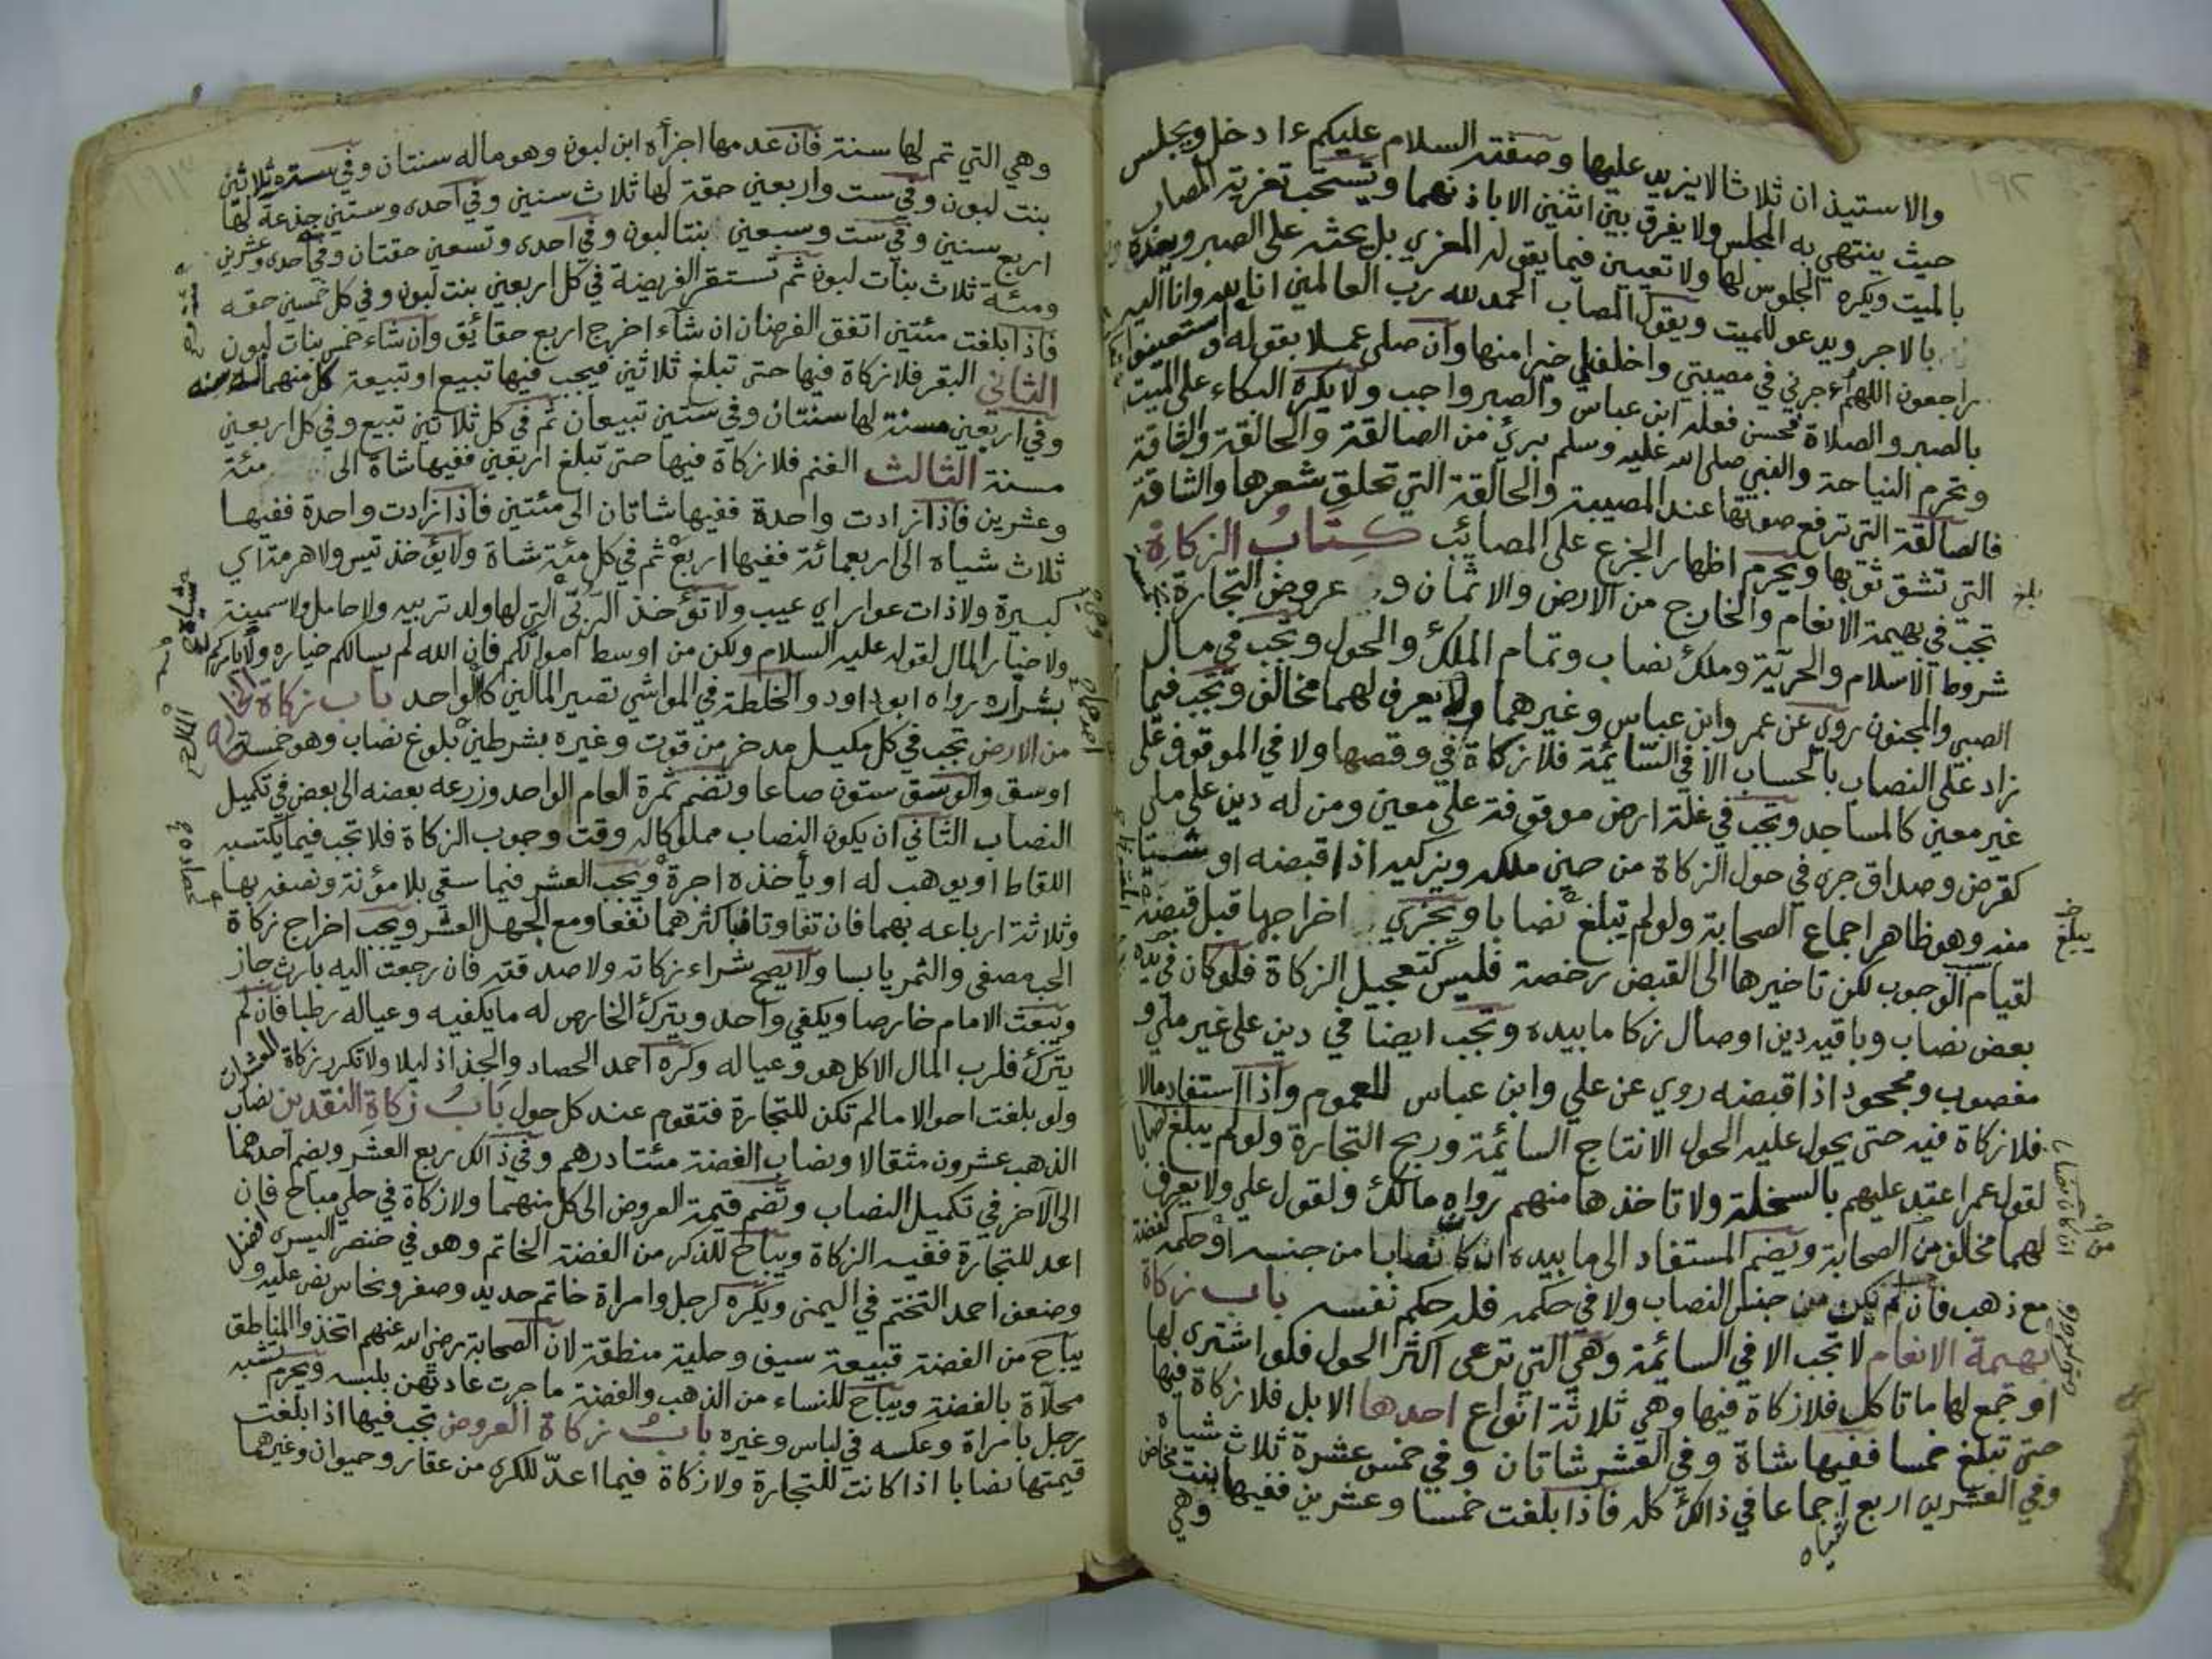 ١٩٢
والاستيذان ثلاثا لا يزيد عليها وصفته السلام عليكم ءادخل ويجلس
حيث ينتهي به المجلس ولا يفرق بين اثنين الا باذنهما وتستحب تعزية المصاب
بالميت ويكره الجلوس لها ولا تعيين فيما يقوله المعزي بل يحثه على الصبر ويعده
بالاجر ويدعو للميت ويقول المصاب الحمد لله رب العالمين انا لله وانا اليه
راجعون اللهم ءاجرني في مصيبتي واخلف لي خيرا منها وان صلى عملا بقوله واستعينوا
بالصبر والصلاة فحسن فعله ابن عباس والصبر واجب ولا يكره البكاء على الميت
وتحرم النياحة والنبي صلى الله عليه وسلم بريء من الصالقة والحالقة والشاقة
فالصالقة التي ترفع صوتها عند المصيبة والحالقة التي تحلق شعرها والشاقة
التي تشق ثوبها ويحرم اظهار الجزع على المصائب كتاب الزكاة
تجب في بهيمة الانعام والخارج من الارض والاثمان و عروض التجارة بخمسة
شروط الاسلام والحرية وملك نصاب وتمام الملك والحول وتجب في مال
الصبي والمجنون روي عن عمر وابن عباس وغيرهما ولا يعرف لهما مخالف وتجب فيما
زاد على النصاب بالحساب الا في السائمة فلا زكاة في وقصها ولا في الموقوف على
غير معين كالمساجد وتجب في غلة ارض موقوفة على معين ومن له دين على ملي
كقرض وصداق جرى في حول الزكاة من حين ملكه ويزكيه اذا قبضه او شيئا
منه وهو ظاهر اجماع الصحابة ولو لم يبلغ نصابا ويجزي اخراجها قبل قبضه
لقيام الوجوب لكن تاخيرها الى القبض رخصة فليس كتعجيل الزكاة فلو كان في يده
بعض نصاب وباقيه دين او ضال زكا ما بيده وتجب ايضا في دين على غير ملي و
مغصوب ومجحود اذا قبضه روي عن علي وابن عباس للعموم واذا استفاد مالا
فلا زكاة فيه حتى يحول عليه الحول الا نتاج السائمة وربح التجارة ولو لم يبلغ نصابا
لقول عمر اعتد عليهم بالسخلة ولا تاخذها منهم رواه مالك ولقول علي ولا يعرف
لهما مخالف من الصحابة ويضم المستفاد الى ما بيده ان كان نصابا من جنسه او حكمه كفضة
مع ذهب فان لم يكن من جنس النصاب ولا في حكمه فله حكم نفسه باب زكاة
بهيمة الانعام لا تجب الا في السائمة وهي التي ترعى اكثر الحول فلو اشترى لها
او جمع لها ما تاكل فلا زكاة فيها وهي ثلاثة انواع احدها الابل فلا زكاة فيها
حتى تبلغ خمسا ففيها شاة وفي العشر شاتان وفي خمس عشرة ثلاث شياه
وفي العشرين اربع شياه اجماعا في ذالك كله فاذا بلغت خمسا وعشرين ففيها بنت مخاض
وهي
بلغ
يبلغ
وهي التي تم لها سنة فان عدمها اجزأه ابن لبون وهو ماله سنتان وفي ستة وثلاثين
بنت لبون وفي ست واربعين حقة لها ثلاث سنين وفي احدى وستين جذعة لها
اربع سنين وفي ست وسبعين بنتا لبون وفي احدى وتسعين حقتان وفي احدى وعشرين
ومئة ثلاث بنات لبون ثم تستقر الفريضة في كل اربعين بنت لبون وفي كل خمسين حقه
فاذا بلغت مئتين اتفق الفرضان ان شاء اخرج اربع حقائق وان شاء خمس بنات لبون
الثاني البقر فلا زكاة فيها حتى تبلغ ثلاثين فيجب فيها تبيع او تبيعة كل منهما له سنه
وفي اربعين مسنة لها سنتان وفي ستين تبيعان ثم في كل ثلاثين تبيع وفي كل اربعين
مسنة الثالث الغنم فلا زكاة فيها حتى تبلغ اربعين ففيها شاة الى مئة
وعشرين فاذا زادت واحدة ففيها شاتان الى مئتين فاذا زادت واحدة ففيها
ثلاث شياه الى اربعمائة ففيها اربع ثم في كل مئة شاة ولا يؤخذ تيس ولا هرمة اي
كبيرة ولا ذات عوار اي عيب ولا تؤخذ الربى التي لها ولد تربيه ولا حامل ولا سمينة
ولا خيار المال لقوله عليه السلام ولكن من اوسط اموالكم فان الله لم يسالكم خياره ولا يامركم
بشراره رواه ابو داود والخلطة في المواشي تصير المالين كالواحد باب زكاة الخارج
من الارض تجب في كل مكيل مدخر من قوت وغيره بشرطين بلوغ نصاب وهو خمسة
اوسق والوسق ستون صاعا وتضم ثمرة العام الواحد وزرعه بعضه الى بعض في تكميل
النصاب الثاني ان يكون النصاب مملوكا له وقت وجوب الزكاة فلا تجب فيما يكتسبه
اللقاط او يوهب له او يأخذه اجرة ويجب العشر فيما سقي بلا مؤنة ونصفه بها
وثلاثة ارباعه بهما فان تفاوتا فباكثرهما نفعا ومع الجهل العشر ويجب اخراج زكاة
الحب مصفى والثمر يابسا ولا يصح شراء زكاته ولا صدقته فان رجعت اليه بارث جاز
ويبعث الامام خارصا ويكفي واحد ويترك الخارص له ما يكفيه وعياله رطبا فان لم
يترك فلرب المال الاكل هو وعياله وكره احمد الحصاد والجذاذ ليلا ولا تكرر زكاة المعشرات
ولو بلغت احوالا ما لم تكن للتجارة فتقوم عند كل حول باب زكاة النقدين نصاب
الذهب عشرون مثقالا ونصاب الفضة مئتا درهم وفي ذالك ربع العشر ويضم احدهما
الى الآخر في تكميل النصاب وتضم قيمة العروض الى كل منهما ولا زكاة في حلي مباح فان
اعد للتجارة ففيه الزكاة ويباح للذكر من الفضة الخاتم وهو في خنصر اليسرى افضل
وضعف احمد التختم في اليمنى ويكره لرجل وامراة خاتم حديد وصفر ونحاس نص عليه و
يباح من الفضة قبيعة سيف وحلية منطقة لان الصحابة رضي الله عنهم اتخذوا المناطق
محلاة بالفضة ويباح للنساء من الذهب والفضة ما جرت عادتهن بلبسه ويحرم تشبه
رجل بامراة وعكسه في لباس وغيره باب زكاة العروض تجب فيها اذا بلغت
قيمتها نصابا اذا كانت للتجارة ولا زكاة فيما اعد للكرى من عقار وحيوان وغيرهما